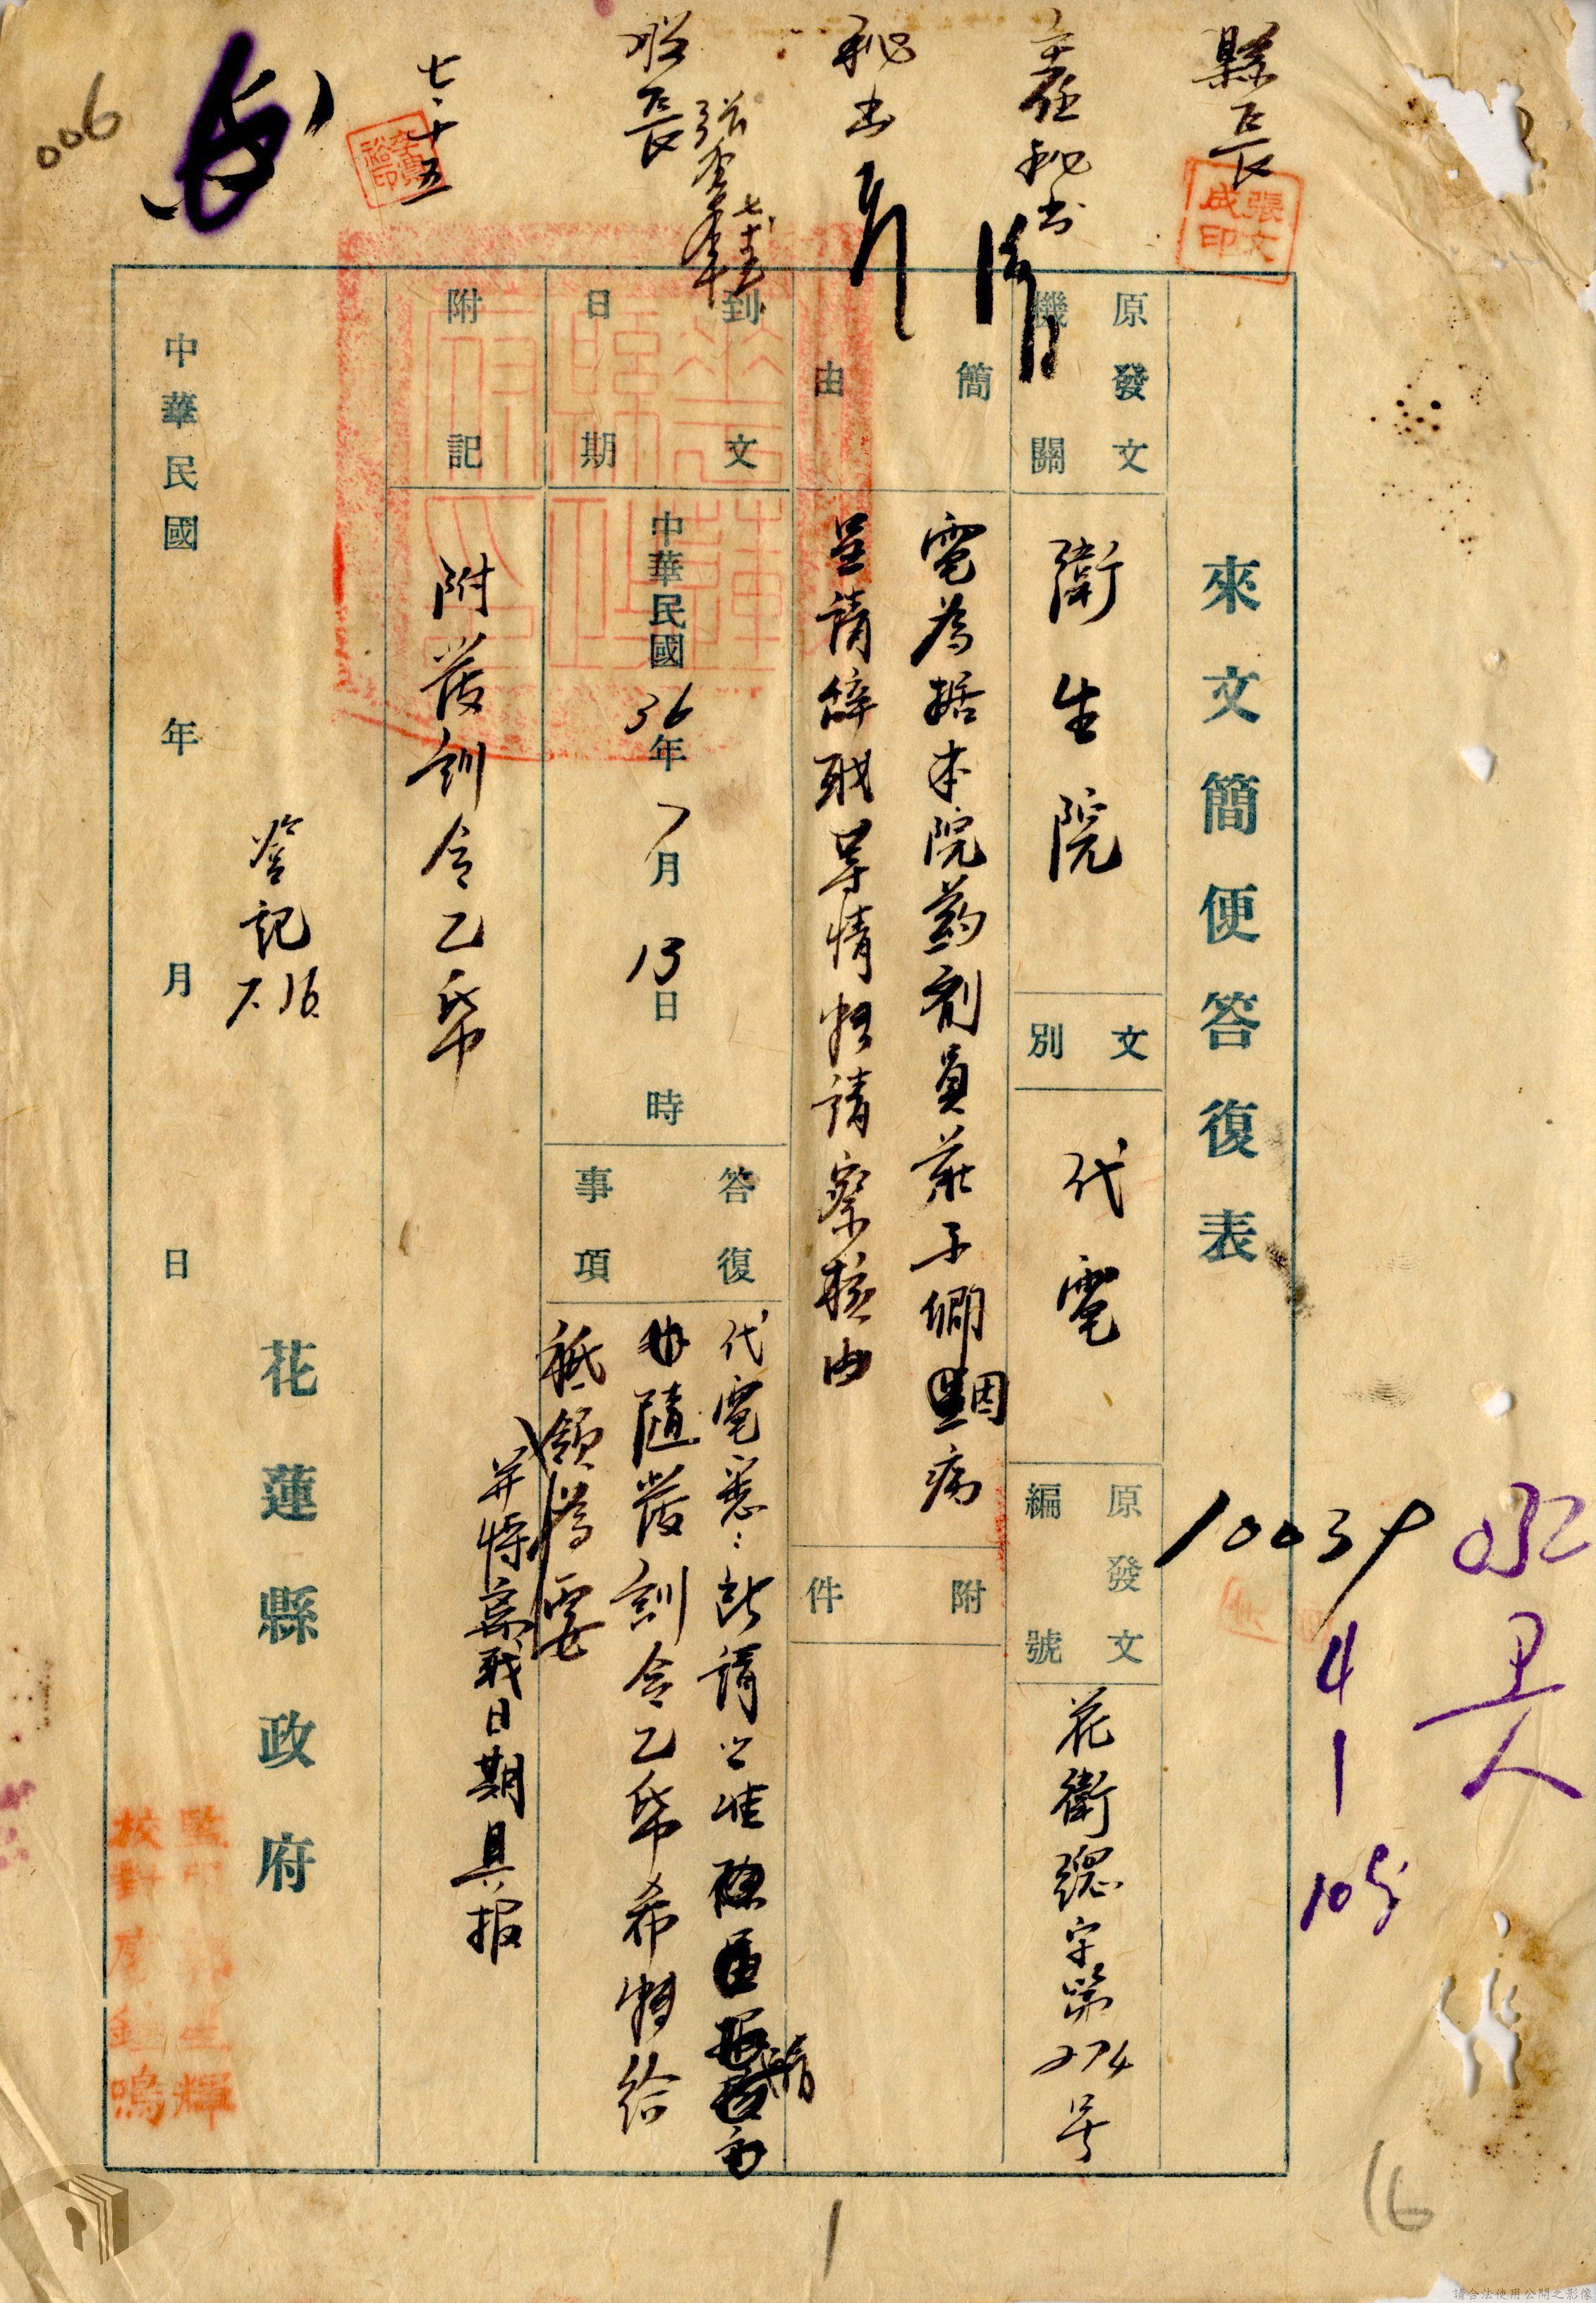 縣長
張文成印
主任秘書
秘書
股長
七、十五
006
來文簡便答復表
原發文機關
衛生院
文別
代電
原發文編號
花衛總字第274号
簡由
電為据本院葯剤員莊子卿因病
呈請辞职等情轉請察核由
附件
到文日期
中華民國36年7月15日 時
答復事項
代電悉：所請公准
隨發訓令乙帋希轉給
祗領為要
并將离职日期具报
附記
附發訓令乙帋
登記
7.16.
花蓮縣政府
中華民國 年 月 日
監印
校對
10039
4
1
10
16
1
請合法使用公開之影像